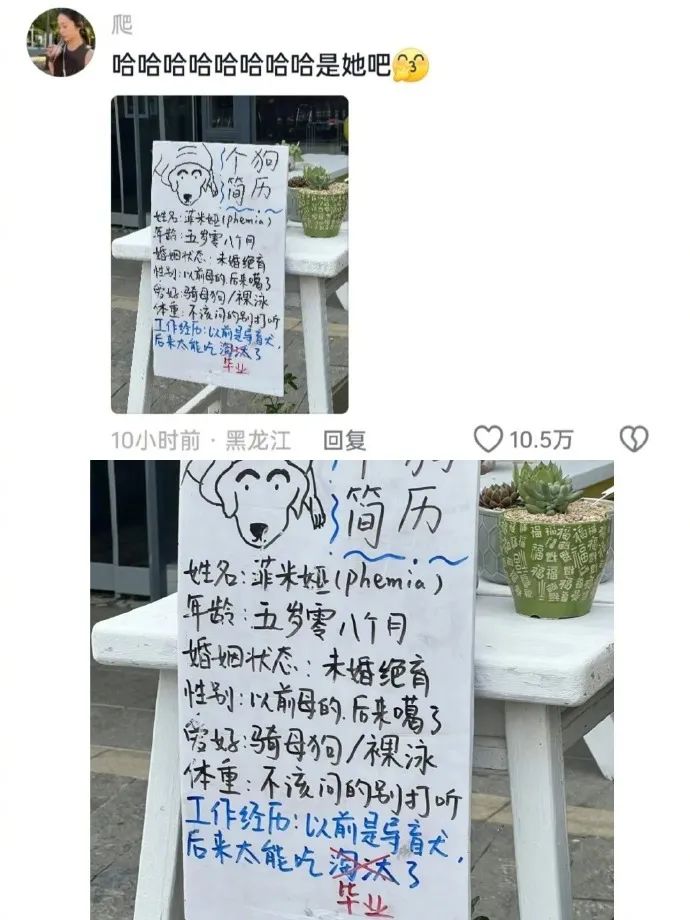 爬
哈哈哈哈哈哈哈哈是她吧
个狗
简历
姓名:菲米娅(phemia)
年龄:五岁零八个月
婚姻状态:未婚绝育
性别:以前母的.后来噶了
爱好:骑母狗/裸泳
体重:不该问的别打听
工作经历:以前是导盲犬,
后来太能吃淘汰了
毕业
10小时前·黑龙江 回复 10.5万
个狗
简历
姓名:菲米娅(phemia)
年龄:五岁零八个月
婚姻状态:未婚绝育
性别:以前母的.后来噶了
爱好:骑母狗/裸泳
体重:不该问的别打听
工作经历:以前是导盲犬,
后来太能吃淘汰了
毕业